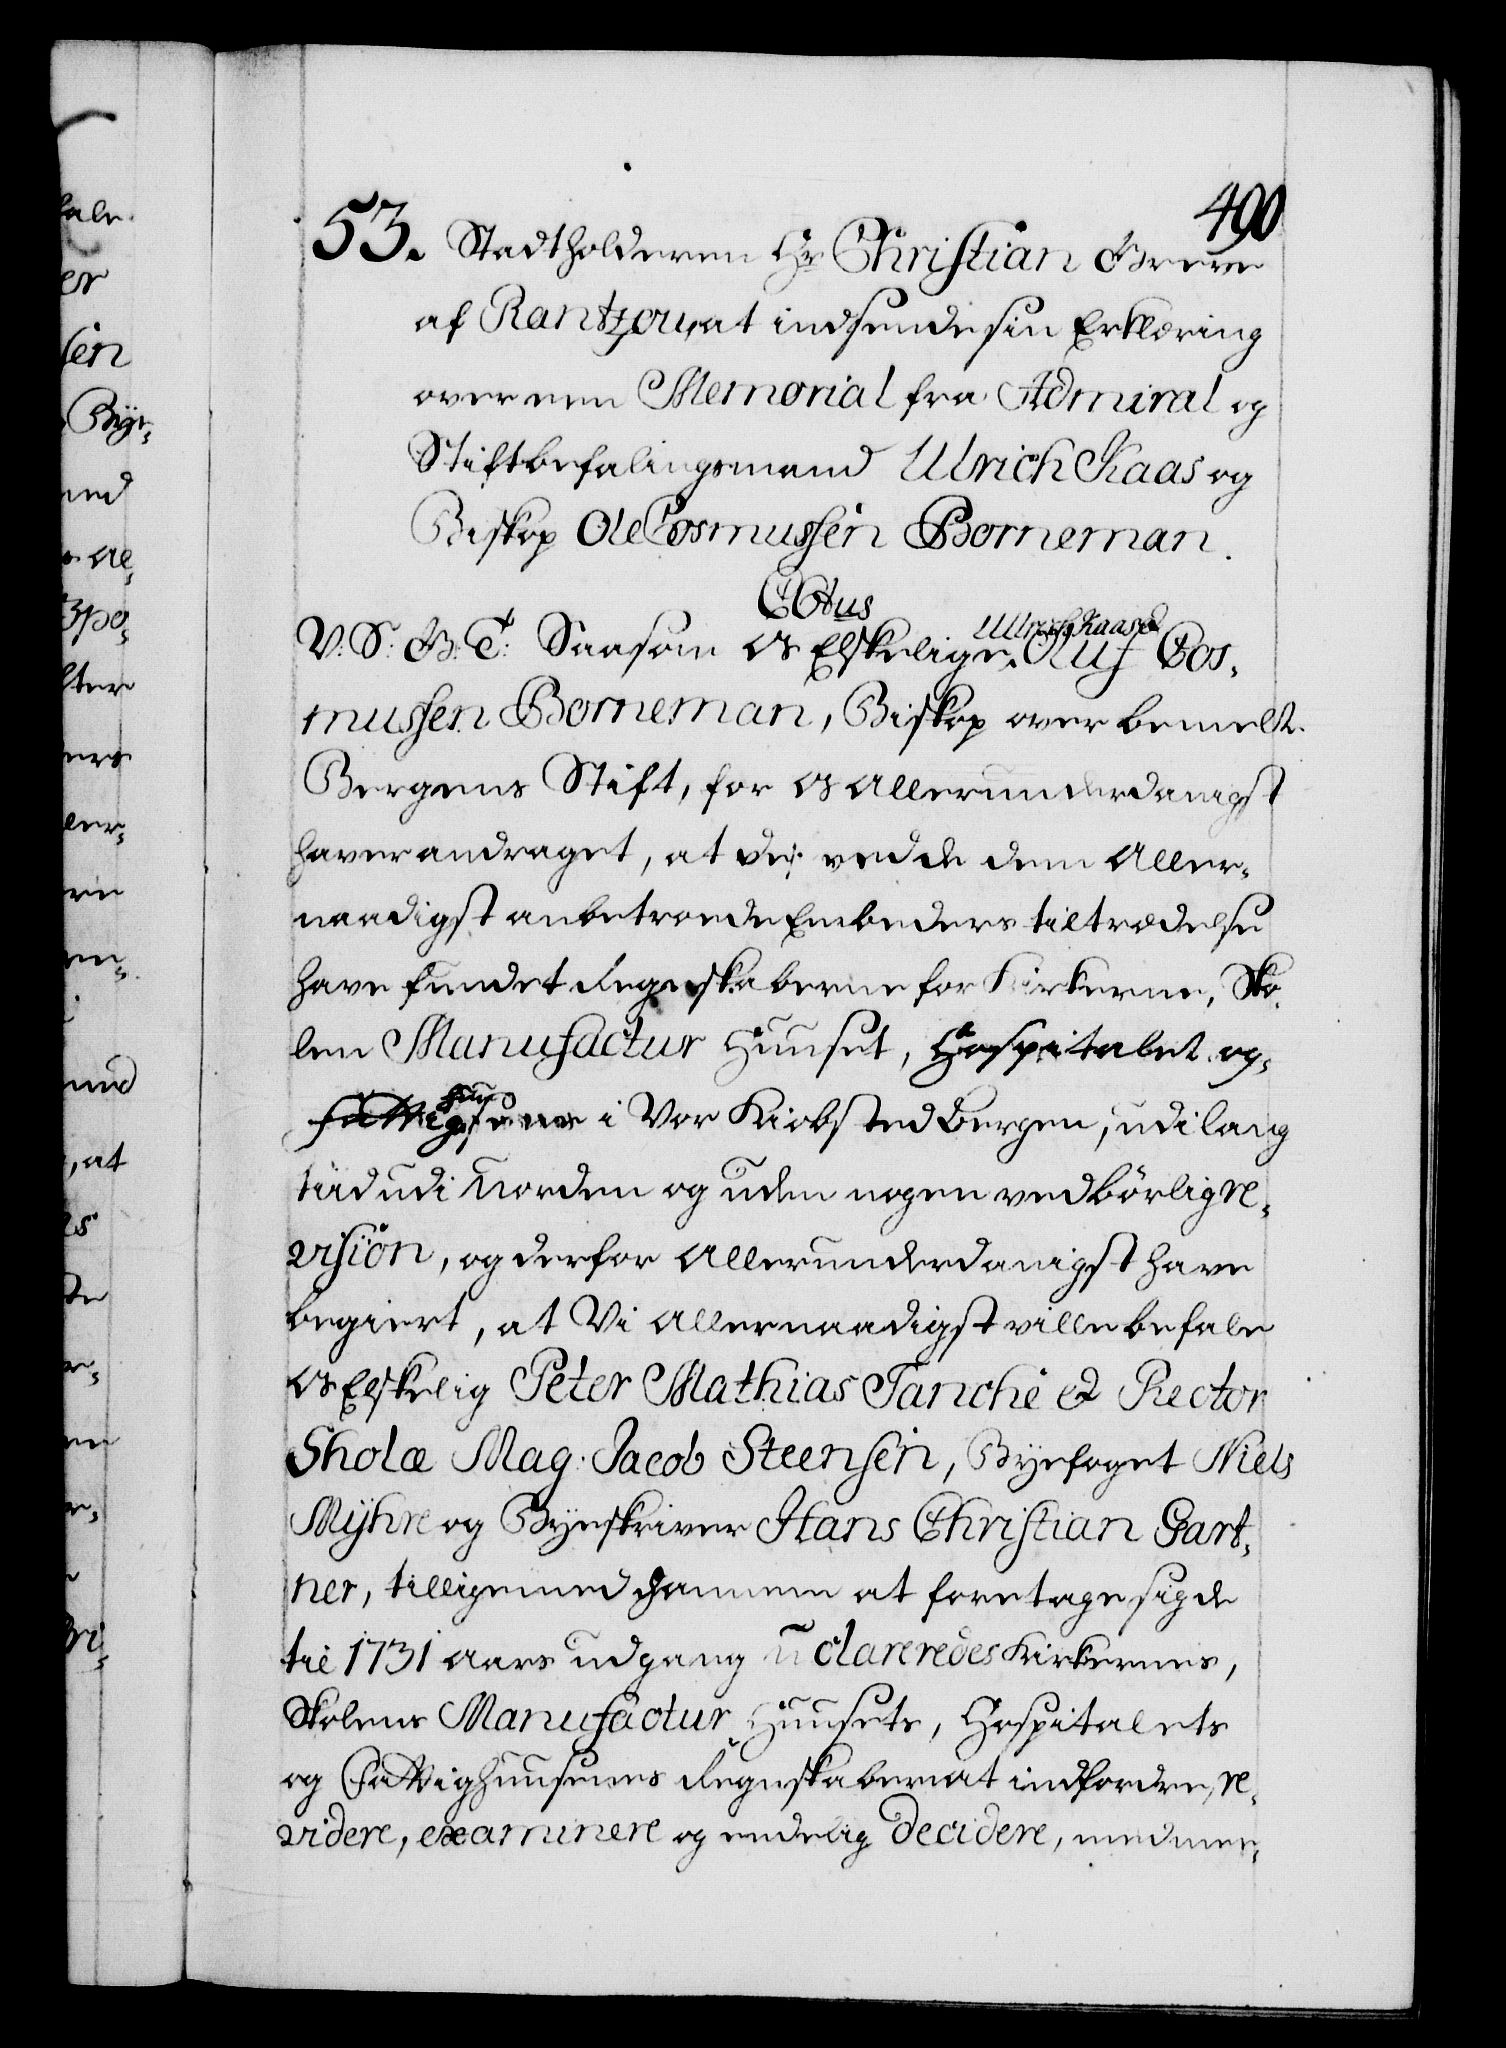 490
53. Stadtholderen Hr Christian Greve
af Rantzou, at indsende sin Erklæring
over een Memorial fra Admiral og
Stiftbefalingsmand Ulrich Kaas og
Biskop Ole Cosmussen Borneman.
C 6tus
V: S: G: T: Saasom Os Elskelige Ulrich Kaas & Oluf Cos-
mussen Borneman, Biskop over bemelt.
Bergens Stift, for Os allerunderdanigst
haver andraget, at de ved de dem Aller-
naadigst anbetroede Embeders tiltrædelse
have fundet Regnskaberne for Kirkerne, Sko-
len Manufactur Huuset, Hospitalet og
Fattighuusene i Vor Kiøbsted Bergen, udi lang
tiid udi Uorden og uden nogen vedbörlig re-
vision, og derfor allerunderdanigst have
begiert, at Vi allernaadigst ville befale
Os Elskelig Peter Mathias Tanche & Rector
Sholæ Mag. Jacob Steensen, Byefoget Niels
Mÿhre og Byeskriver Hans Christian Gart-
ner, tilligemed hannem at foretage sig de
til 1731 Aars udgang uclareredes Kirkernes,
Skolens Manufactur Huusets, Hospitalets
og Fattighuusenes Regnskaber at indfordre, re-
videre, examinere og endelig Decidere, med meer-